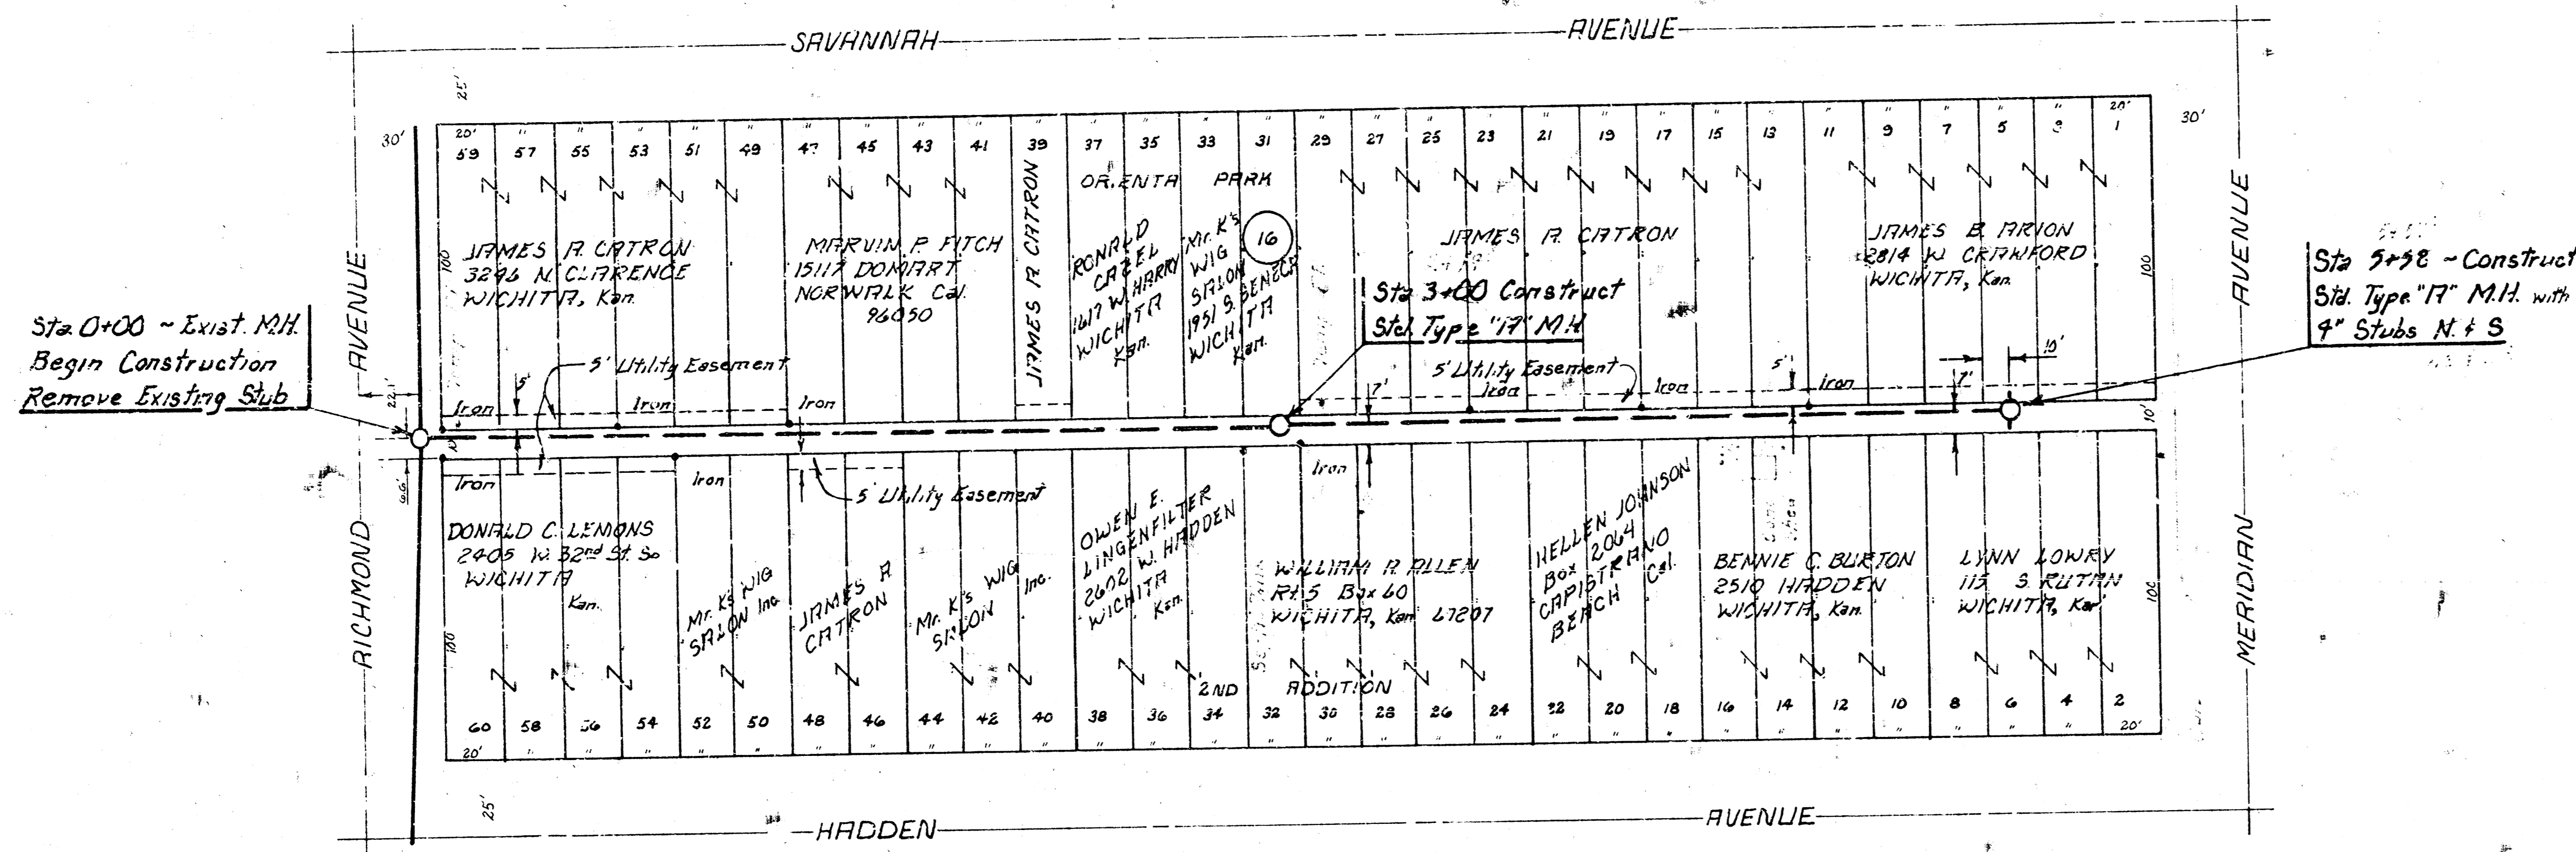 SAVANNAH AVENUE
25'
30' 30'
20' " " " " " " " " " " " " " " " " " " " " " " " " " " " " 20'
59 57 55 53 51 49 47 45 43 41 39 37 35 33 31 29 27 25 23 21 19 17 15 13 11 9 7 5 3 1
ORIENTA PARK
16
JAMES A. CATRON
3296 N. CLARENCE
WICHITA, Kan.
MARVIN P. FITCH
15117 DOMART
NORWALK Cal.
96050
JAMES A CATRON
RONALD
CAZEL
1617 W. HARRY
WICHITA
Kan.
Mr. K's
WIG
SALON
1951 S. SENECA
WICHITA
Kan.
JAMES A. CATRON
JAMES B. ARION
2814 W. CRAWFORD
WICHITA, Kan.
100
100
AVENUE
AVENUE
Sta. 0+00 ~ Exist. M.H.
Begin Construction
Remove Existing Stub
Sta 3+00 Construct
Std. Type "A" M.H.
Sta 5+58 ~ Construct
Std. Type "A" M.H. with
4" Stubs N. & S
22.1'
5'
5' Utility Easement
5' Utility Easement
Iron Iron Iron Iron Iron Iron
7'
5'
7'
10'
10'
6.6'
Iron Iron Iron
5' Utility Easement
DONALD C. LEMONS
2405 W. 32nd St. So
WICHITA
Kan.
Mr. K's WIG
SALON Inc.
JAMES A
CATRON
Mr. K's WIG
SALON Inc.
OWEN E.
LINGENFILTER
2602 W. HADDEN
WICHITA
Kan.
WILLIAM A. ALLEN
Rt. 5 Box 60
WICHITA, Kan 67207
HELLEN JOHNSON
Box 2064
CAPISTRANO
BEACH Cal.
BENNIE C. BURTON
2510 HADDEN
WICHITA, Kan.
LYNN LOWRY
115 S. RUTAN
WICHITA, Kan.
100
100
RICHMOND
MERIDIAN
2ND ADDITION
60 58 56 54 52 50 48 46 44 42 40 38 36 34 32 30 28 26 24 22 20 18 16 14 12 10 8 6 4 2
20' " " " " " " " " " " " " " " " " " " " " " " " " " " " " 20'
25'
HADDEN AVENUE